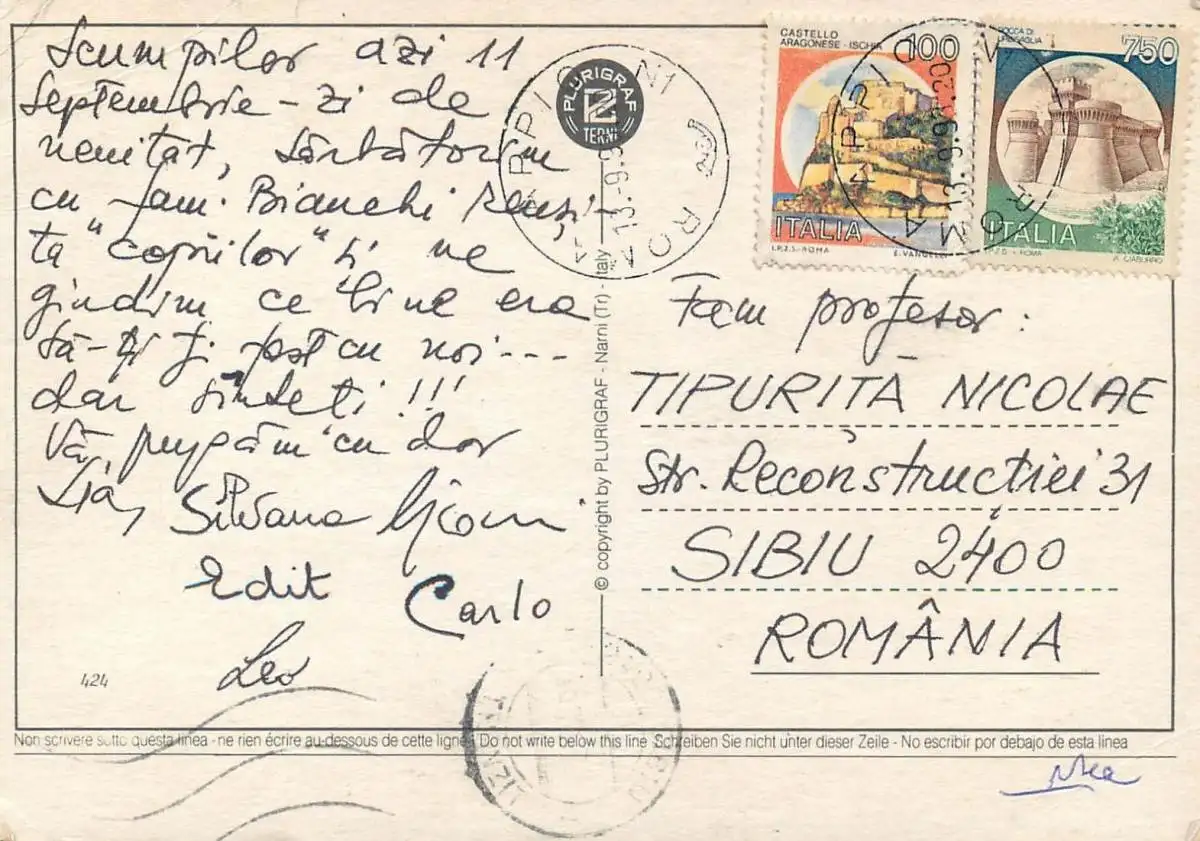 Scumpilor azi 11
Septembrie - zi de
neuitat, sărbătorim
cu fam. Bianchi Reuși-
ta "copiilor" și ne
gîndim ce bine era
să-și fi fost cu noi ---
dar sînteți!!!
Vă pupăm cu dor
Silvana
Edit Carlo
Leo
424
PLURIGRAF
TERNI
ROMA
13.-9.9
© copyright by PLURIGRAF - Narni (Tr) - Italy
CASTELLO
ARAGONESE - ISCHIA
100
ITALIA
I.P.Z.S. - ROMA
ROCCA DI
URBISAGLIA
750
ITALIA
I.P.Z.S. - ROMA
Fam profesor:
TIPURIȚĂ NICOLAE
Str. Reconstrucției 31
SIBIU 2400
ROMÂNIA
Non scrivere sotto questa linea - ne rien écrire au-dessous de cette ligne Do not write below this line Schreiben Sie nicht unter dieser Zeile - No escribir por debajo de esta linea